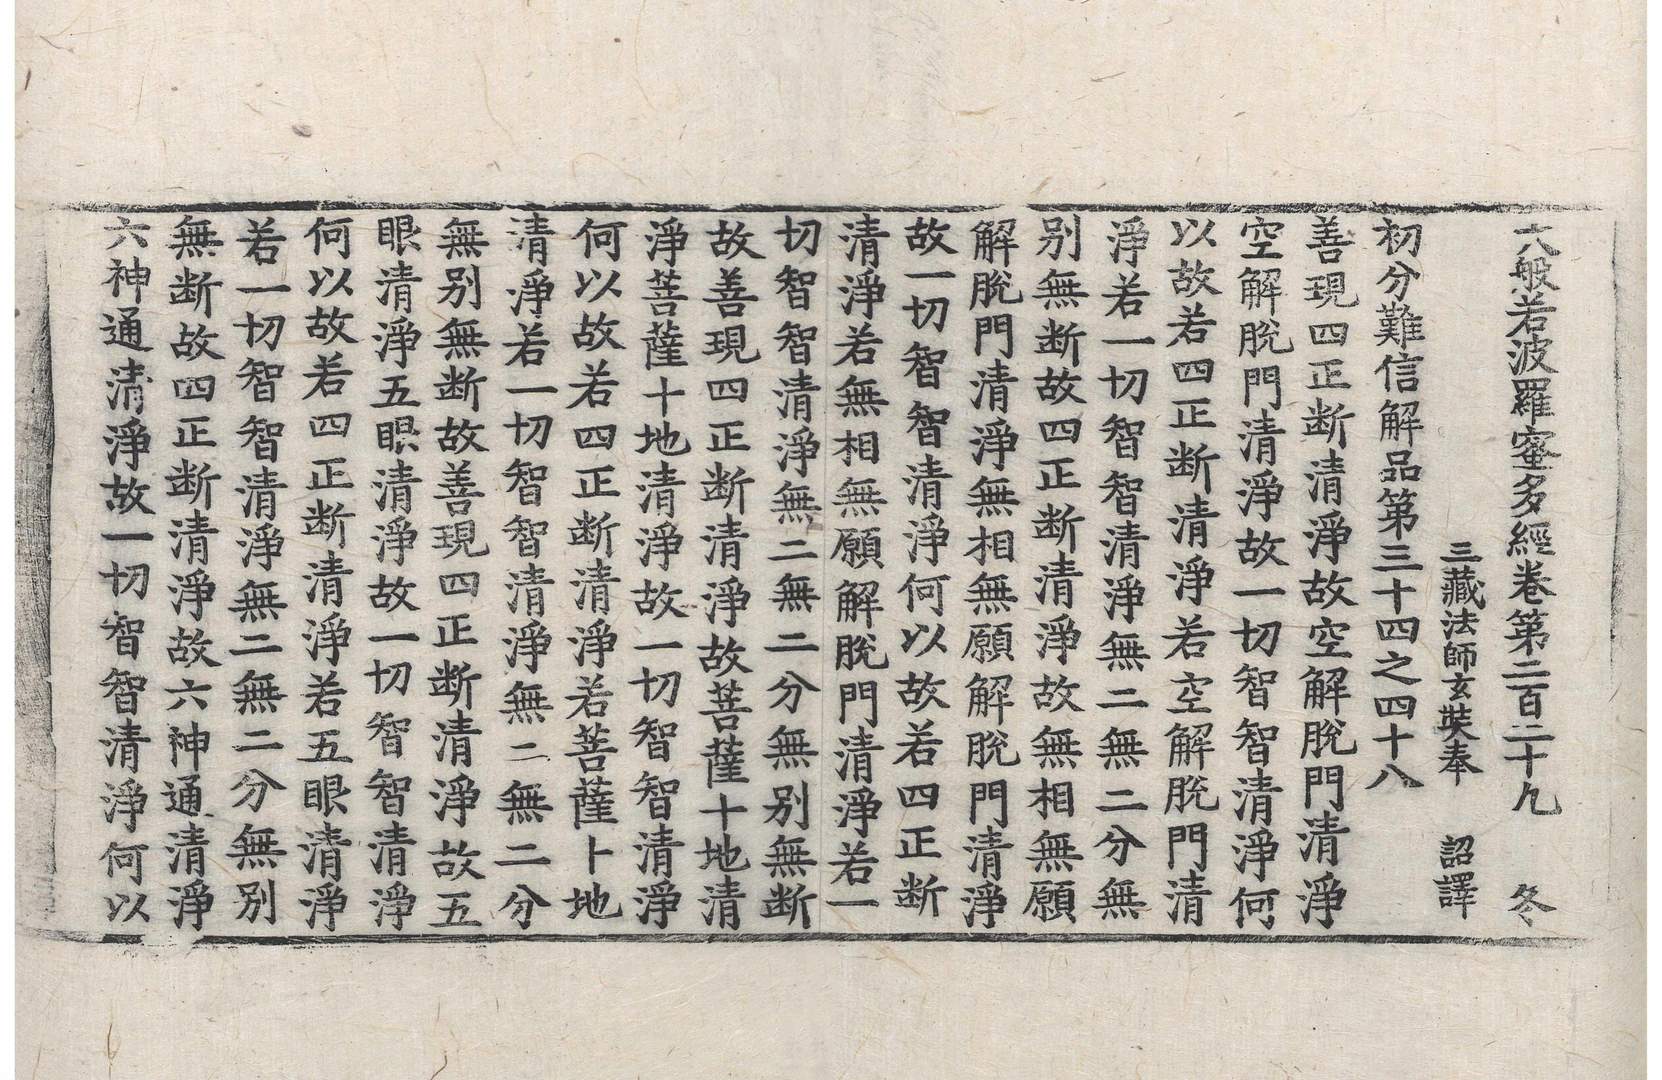 大般若波羅蜜多經卷第二百二十九 冬
三藏法師玄奘奉 詔譯
初分難信解品第三十四之四十八
善現四正断清淨故空解脫門清淨
空解脫門清淨故一切智智清淨何
以故若四正断清淨若空解脫門清
淨若一切智智清淨無二無二分無
别無断故四正断清淨故無相無願
解脫門清淨無相無願解脫門清淨
故一切智智清淨何以故若四正断
清淨若無相無願解脫門清淨若一
切智智清淨無二無二分無别無断
故善現四正断清淨故菩薩十地清
淨菩薩十地清淨故一切智智清淨
何以故若四正断清淨若菩薩十地
清淨若一切智智清淨無二無二分
無别無断故善現四正断清淨故五
眼清淨五眼清淨故一切智智清淨
何以故若四正断清淨若五眼清淨
若一切智智清淨無二無二分無别
無断故四正断清淨故六神通清淨
六神通清淨故一切智智清淨何以